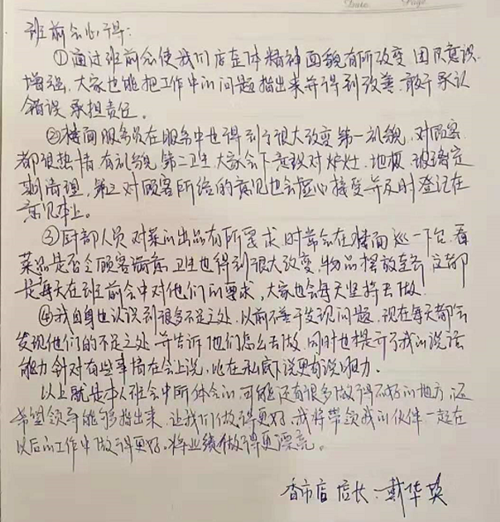 班前会心得:
①通过班前会使我们店在体精神面貌有所改变 团队意识
增强,大家也能把工作中的问题指出来并得到改善,敢于承认
错误 承担责任。
②楼面服务员在服务中也得到了很大改变 第一礼貌,对顾客
都很热情有礼貌 第二卫生,大家会下意识对炉灶、地板、玻璃定
期清理,第三对顾客所给的意见也会虚心接受并及时登记在
意见本上。
③厨部人员对菜的出品有所要求,时常会在楼面巡一下台,看
菜品是否令顾客满意,卫生也得到很大改变,物品摆放整齐,这都
是每天在班前会中对他们的要求,大家也会每天坚持去做。
④我自身也认识到很多不足之处,以前不善于发现问题,现在每天都会
发现他们的不足之处并告诉他们怎么去做,同时也提升了我的说话
能力,针对有些事情在会上说,比在私底下说更有说服力。
以上就是本人班会中所体会的,可能还有很多做得不好的地方,还
希望领导能够指出来,让我们做得更好,我将带领我的伙伴一起在
以后的工作中做得更好,将业绩做得更漂亮。
香市店 店长:戴华英